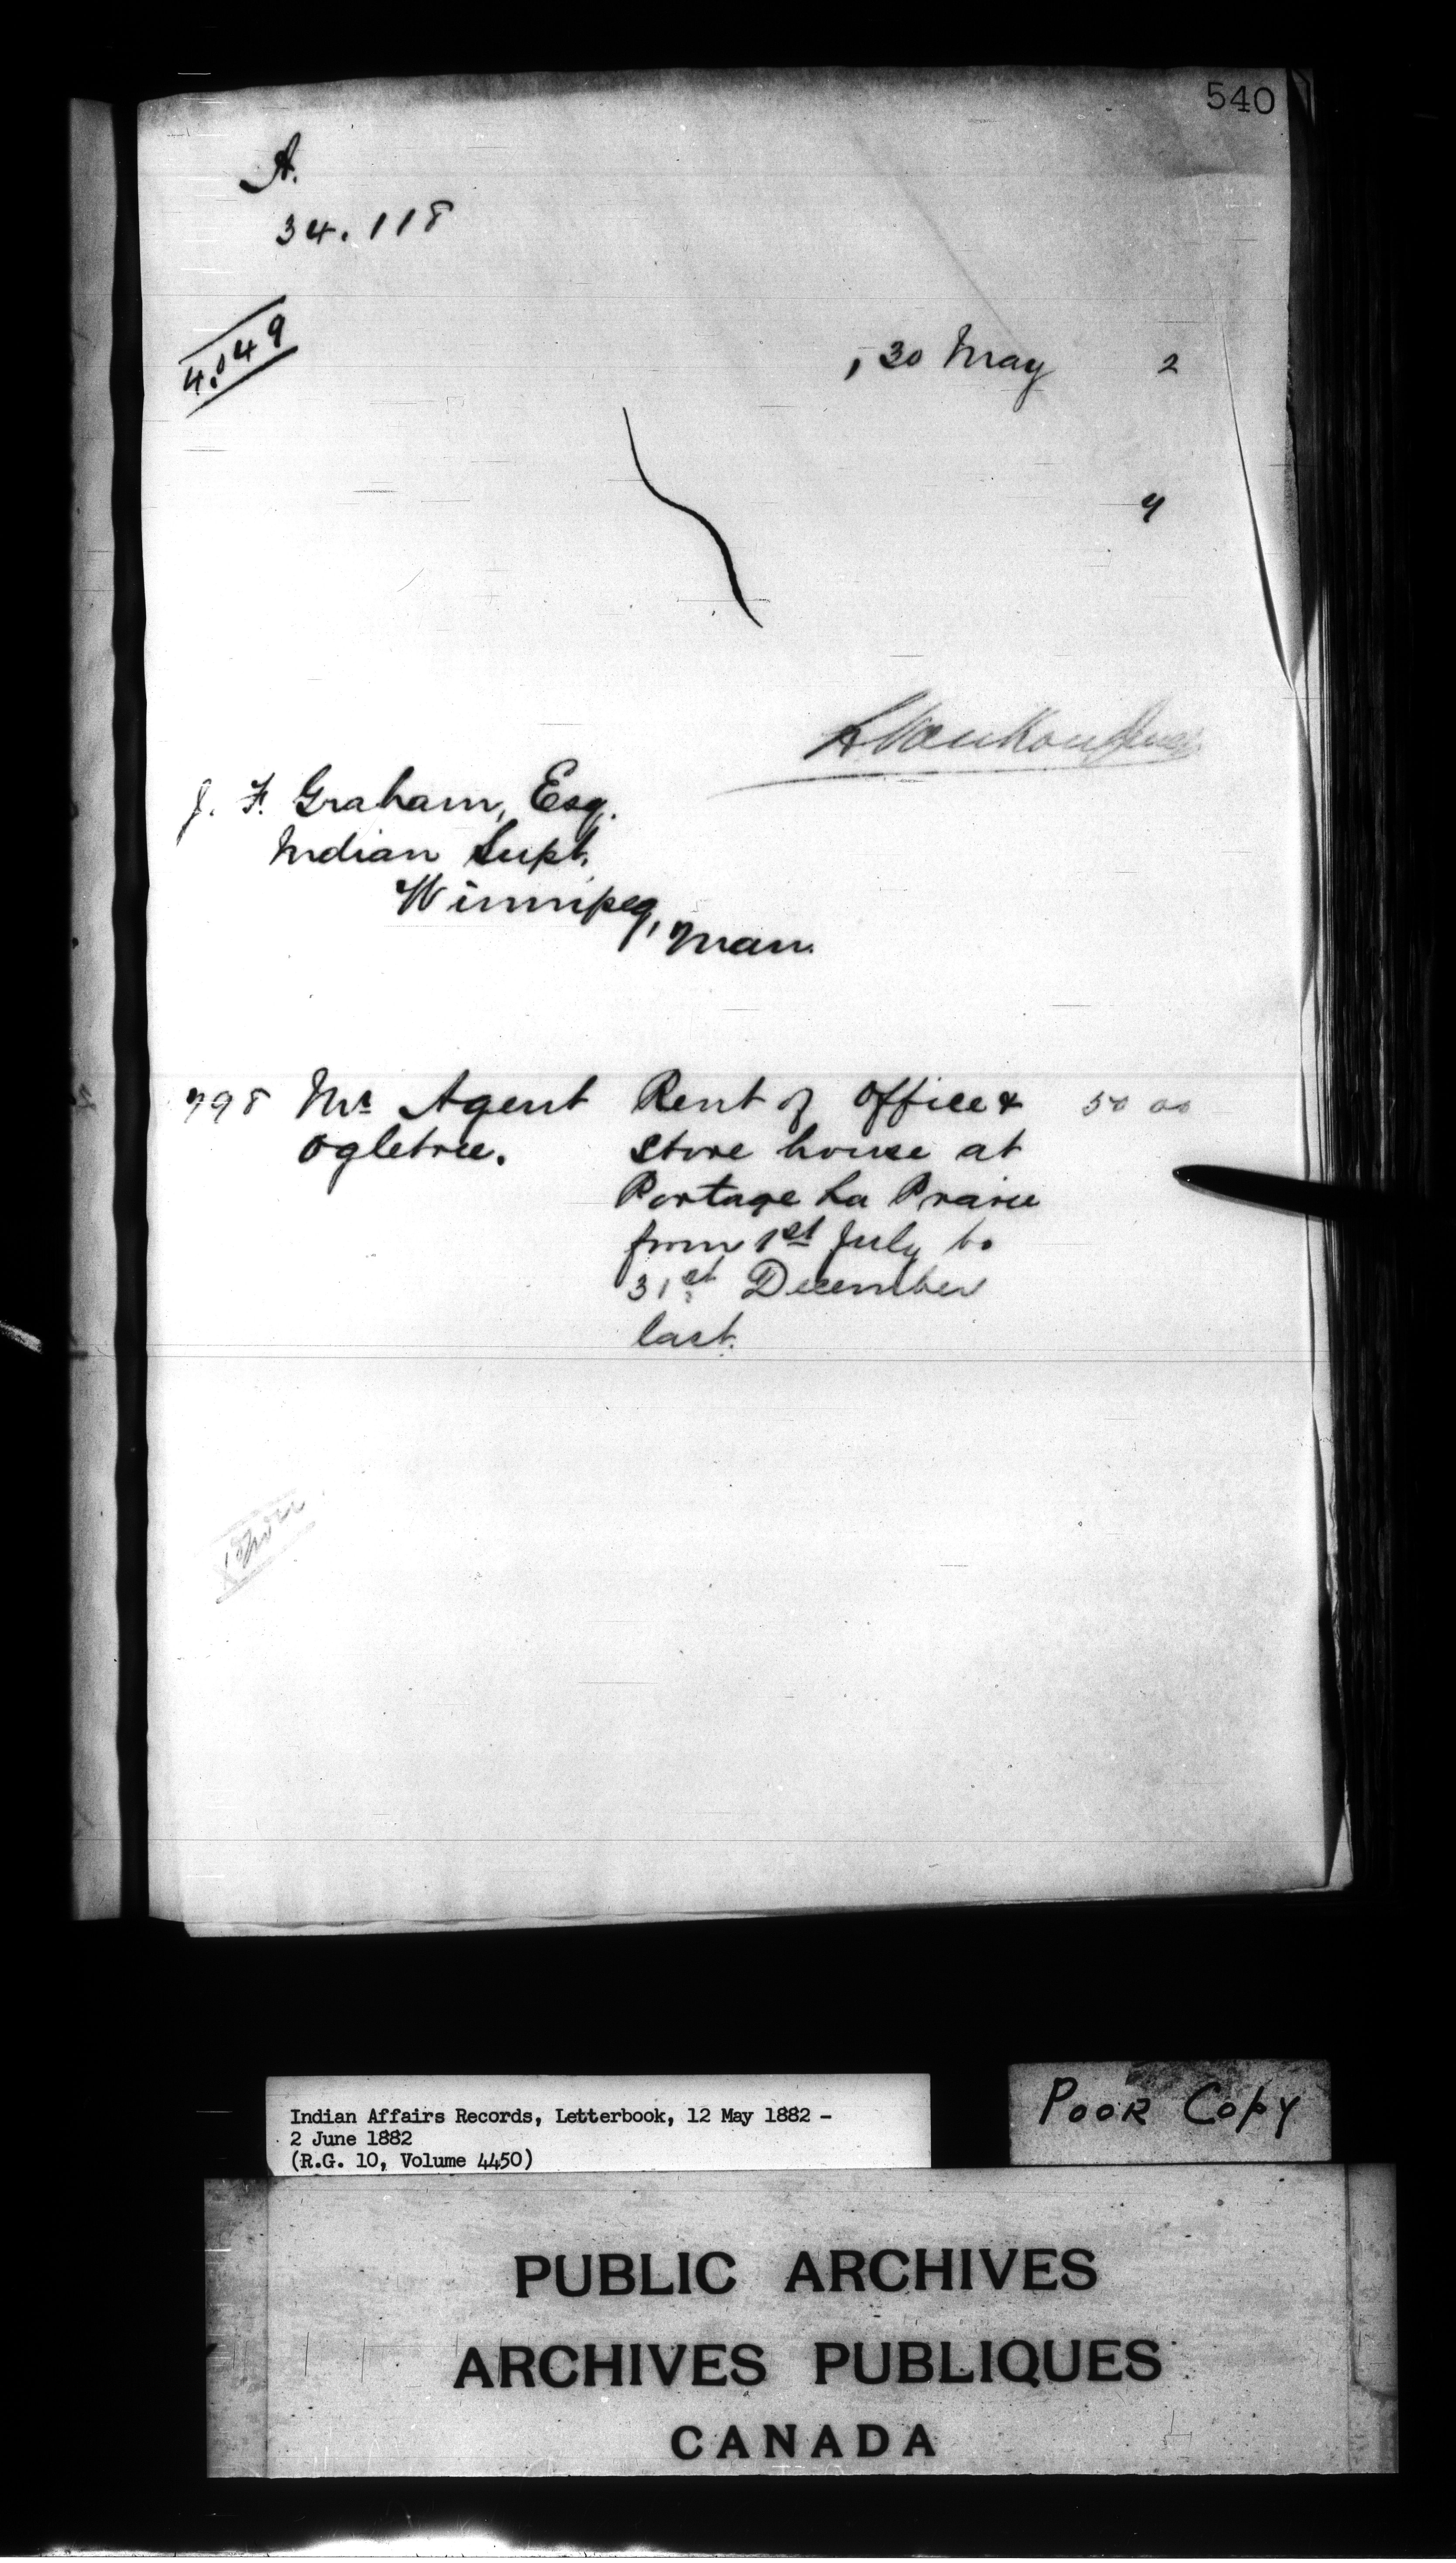 540
A.
34.118
4.049
, 30 May 2
4
L VanKoughnet
J. F. Graham, Esq.
Indian Supt.
Winnipeg,
Man.
798 Mr Agent Rent of Office & 50 00
Ogletree. Store house at
Portage La Prairie
from 1st July to
31st December
last.
Indian Affairs Records, Letterbook, 12 May 1882 -
2 June 1882
(R.G. 10, Volume 4450)
POOR COPY
PUBLIC ARCHIVES
ARCHIVES PUBLIQUES
CANADA